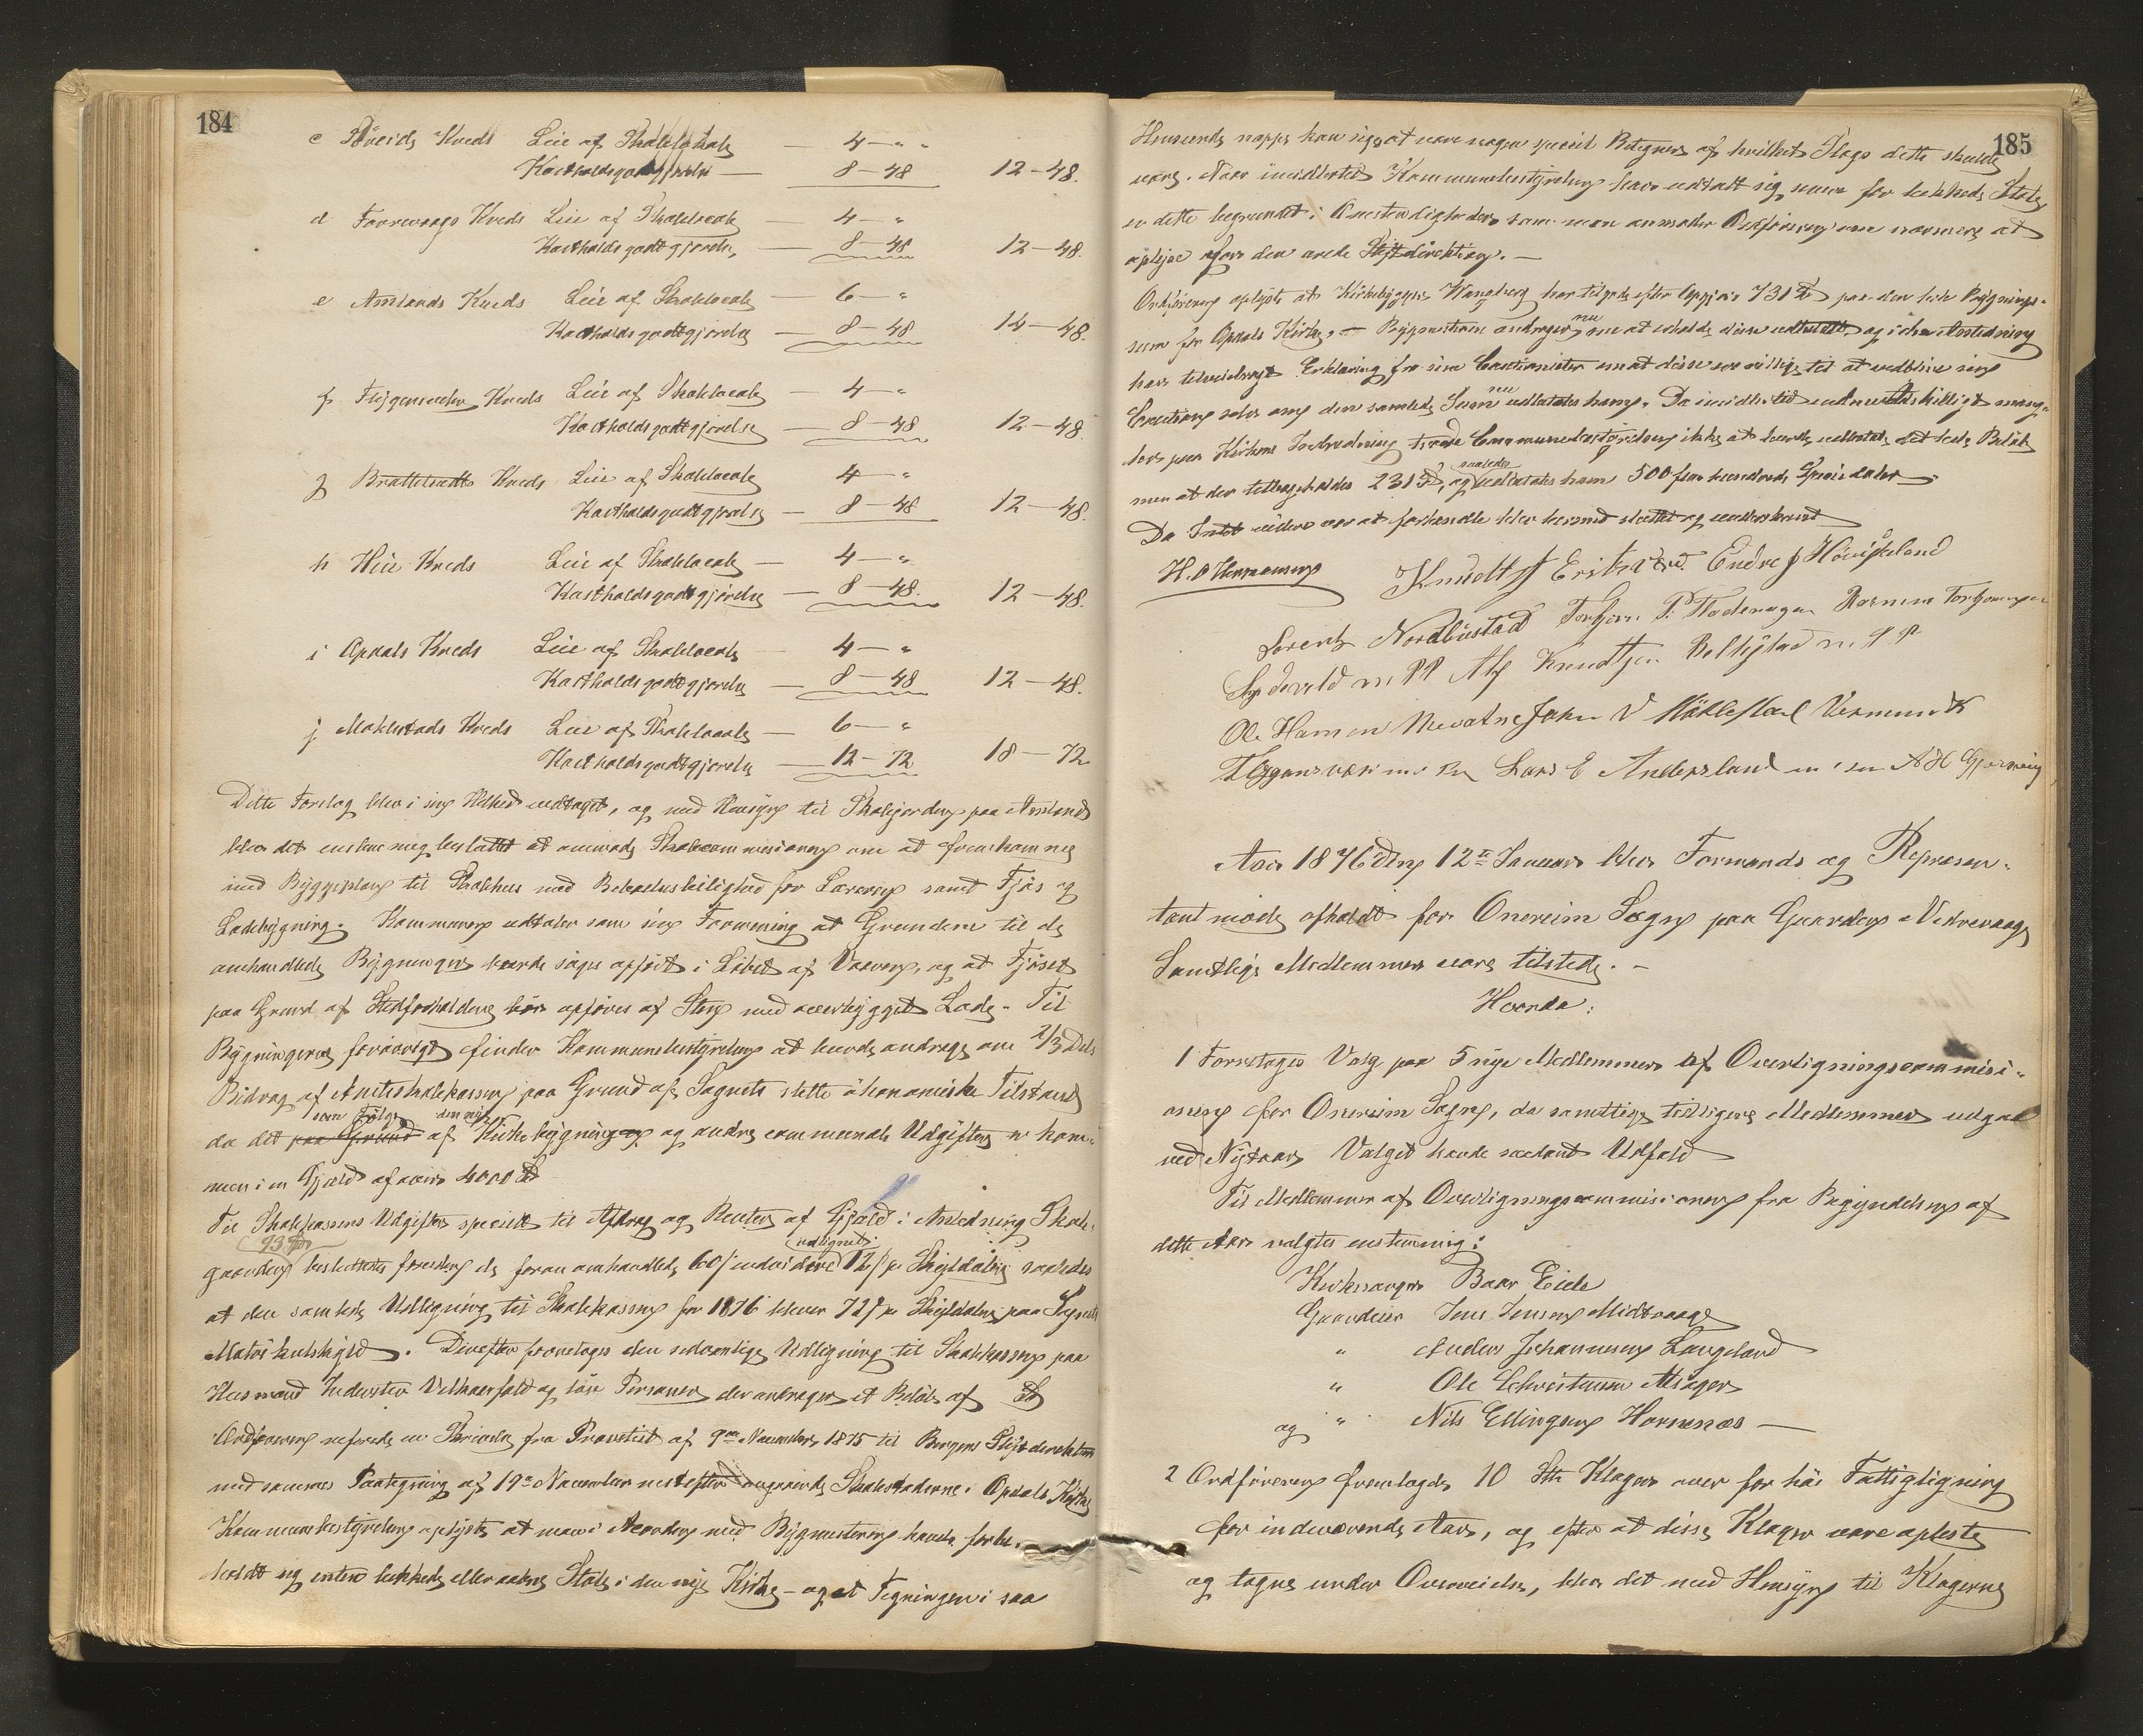 184
c Kreds Leie af Skolelokale — 4 — " "
Kostholdsgodtgjørelse — 8 — 48 12 — 48.
d Fourevaags Kreds Leie af Skolelocale — 4 — "
Kostholdsgodtgjørelse, — 8 — 48 12 — 48.
e Amlands Kreds Leie af Skolelocale — 6 — "
Kostholdsgodtgjørelse — 8 — 48 14 — 48.
f Flygansvær Kreds Leie af Skolelocale — 4 — "
Kostholdsgodtgjørelse — 8 — 48 12 — 48
g Brattetsadts Kreds Leie af Skolelocale 4 — "
Kostholdsgodtgjørelse — 8 — 48 12 — 48.
h Kreds Leie af Skolelocale — 4 — "
Kostholdsgodtgjørelse — 8 — 48. 12 — 48.
i Opdals Kreds Leie af Skolelocale 4 — "
Kostholdsgodtgjørelse — 8 — 48 12 — 48.
j Møklestads Kreds Leie af Skolelocale — 6 — "
Kostholdsgodtgjørelse — 12 — 72 18 — 72
Dette Forslag blev i sin Helhed vedtaget, og med Hensyn til Skolejorden paa Amland
blev det enstemmig besluttet at anmode Skolecommissionen om at fremkomme
med Byggeplan til Skolehus med Beboelsesleilighed for Læreren samt Fjøs og
Ladebygning. Kommunen udtaler som sin Formening at Grunden til de
omhandlede Bygninger burde søges opført i Løbet af Vaaren, og at Fjøset
paa Grund af Stedforholdene bør opføres af Sten med overbygget Lade. Til
Bygningernes forøvrigt finder Kommunebestyrelsen at burde andrage om 2/3 Dels
Bidrag af Amtsskolekassen paa Grund af Sognets slette økonomiske Tilstand
som Følge den nye
da det paa Grund af Kirkebygning og andre communale Udgifter er kom-
men i en Gjæld af over 4000 Spd
Til Skolekassens Udgifter specielt til Afdrag og Renter af Gjæld i Anledning Skole-
93 Spd udlignet
gaarden besluttedes foruden de foran omhandlede 60 / endvidere 12 / pr Skylddaler saaledes
at den samlede Udligning til Skolekassen for 1876 bliver 72 / pr Skylddaler paa Sognets
Matrikulskyld. Derefter foretoges den sedvanlige Udligning til Skolekassen paa
Husmænd Inderster og løse Personer der andrager et Beløb af Spd
Ordføreren refererede en Skrivelse fra Provstiet af 9de November 1875 til Bergens Stiftsdirektion
med sammes Paategning af 19de November angaaende Skolestaderne i Opdals Kirke
Kommunebestyrelsen oplyste at man i Accorden med Bygmesteren havde forbe-
holdt sig enten lukkede eller aabne Stole i den nye Kirke — og at Tegningen i saa
185
Henseende neppe kan siges at være nogen speciel Betegnelse af hvilket Slags dette skulde
være. Naar imidlertid Kommunebestyrelsen har udtalt sig mere for lukkede Stole
er dette begrundet i Omstændigheder som man anmoder Ordføreren om nærmere at
oplyse for den ærede Stiftsdirektion. —
Ordføreren oplyste at Kirkebygger Wangberg har tilgode efter Opgjør 731 Spd paa den hele Bygnings-
nu
sum for Opdals Kirke. — Bygmesteren andrager om at erholde disse udbetalt og i den Anledning
har tilveiebragt Erklæring fra sine Cautionister om at disse ere villige til at vedblive sin
nu
Caution selv om den samlede Sum udbetales ham. Da imidlertid endnu Adskilligt mang-
ler paa Kirkens Indredning troede Communebestyrelsen ikke at burde udbetale det hele Beløb
saaledes
men at der tilbageholdes 231 Spd, og udbetales ham 500 fem hundrede Speciedaler
Da Intet videre var at forhandle blev hermed sluttet og underskrevet
H. O Hermansen Knudt J Eriksen Endre J Høviskeland
Lorentz Nordbustad Torbjørn P. Flodervagen Rasmus Torbjørnsen
m. P P Knudtsen m P P
Ole Hansen Nevatne John V Møklestad Vernund
Flygansvær m. P. Lars E Andersland m i P A H Gjerning
Aar 1876 den 12te Januar blev Formands og Represen-
tantmøde afholdt for Onereim Sogn paa Gaarden Vedrevaage
Samtlige Medlemmer vare tilstede. —
Hvorda:
1 Foretoges Valg paa 5 nye Medlemmer af Overligningscommissi-
onen for Onereim Sogn, da samtlige tidligere Medlemmer udgaa
ved Nytaar. Valget havde saadant Udfald
Til Medlemmer af Overligningscommissionen fra Begyndelsen af
dette Aar valgtes enstemmig:
Kirkesanger Baar Eide
Gaardeier Jens Jensen Midtvaage
" Anders Johannesen Langeland
" Ole Alsager
og " Nils Ellingsen Hornenæs —
2 Ordføreren fremlagde 10 Stk Klager over for høi Fattigligning
for indeværende Aar, og efter at disse Klager vare oplæste
og tagne under Overveielse, blev det med Hensyn til Klagerne